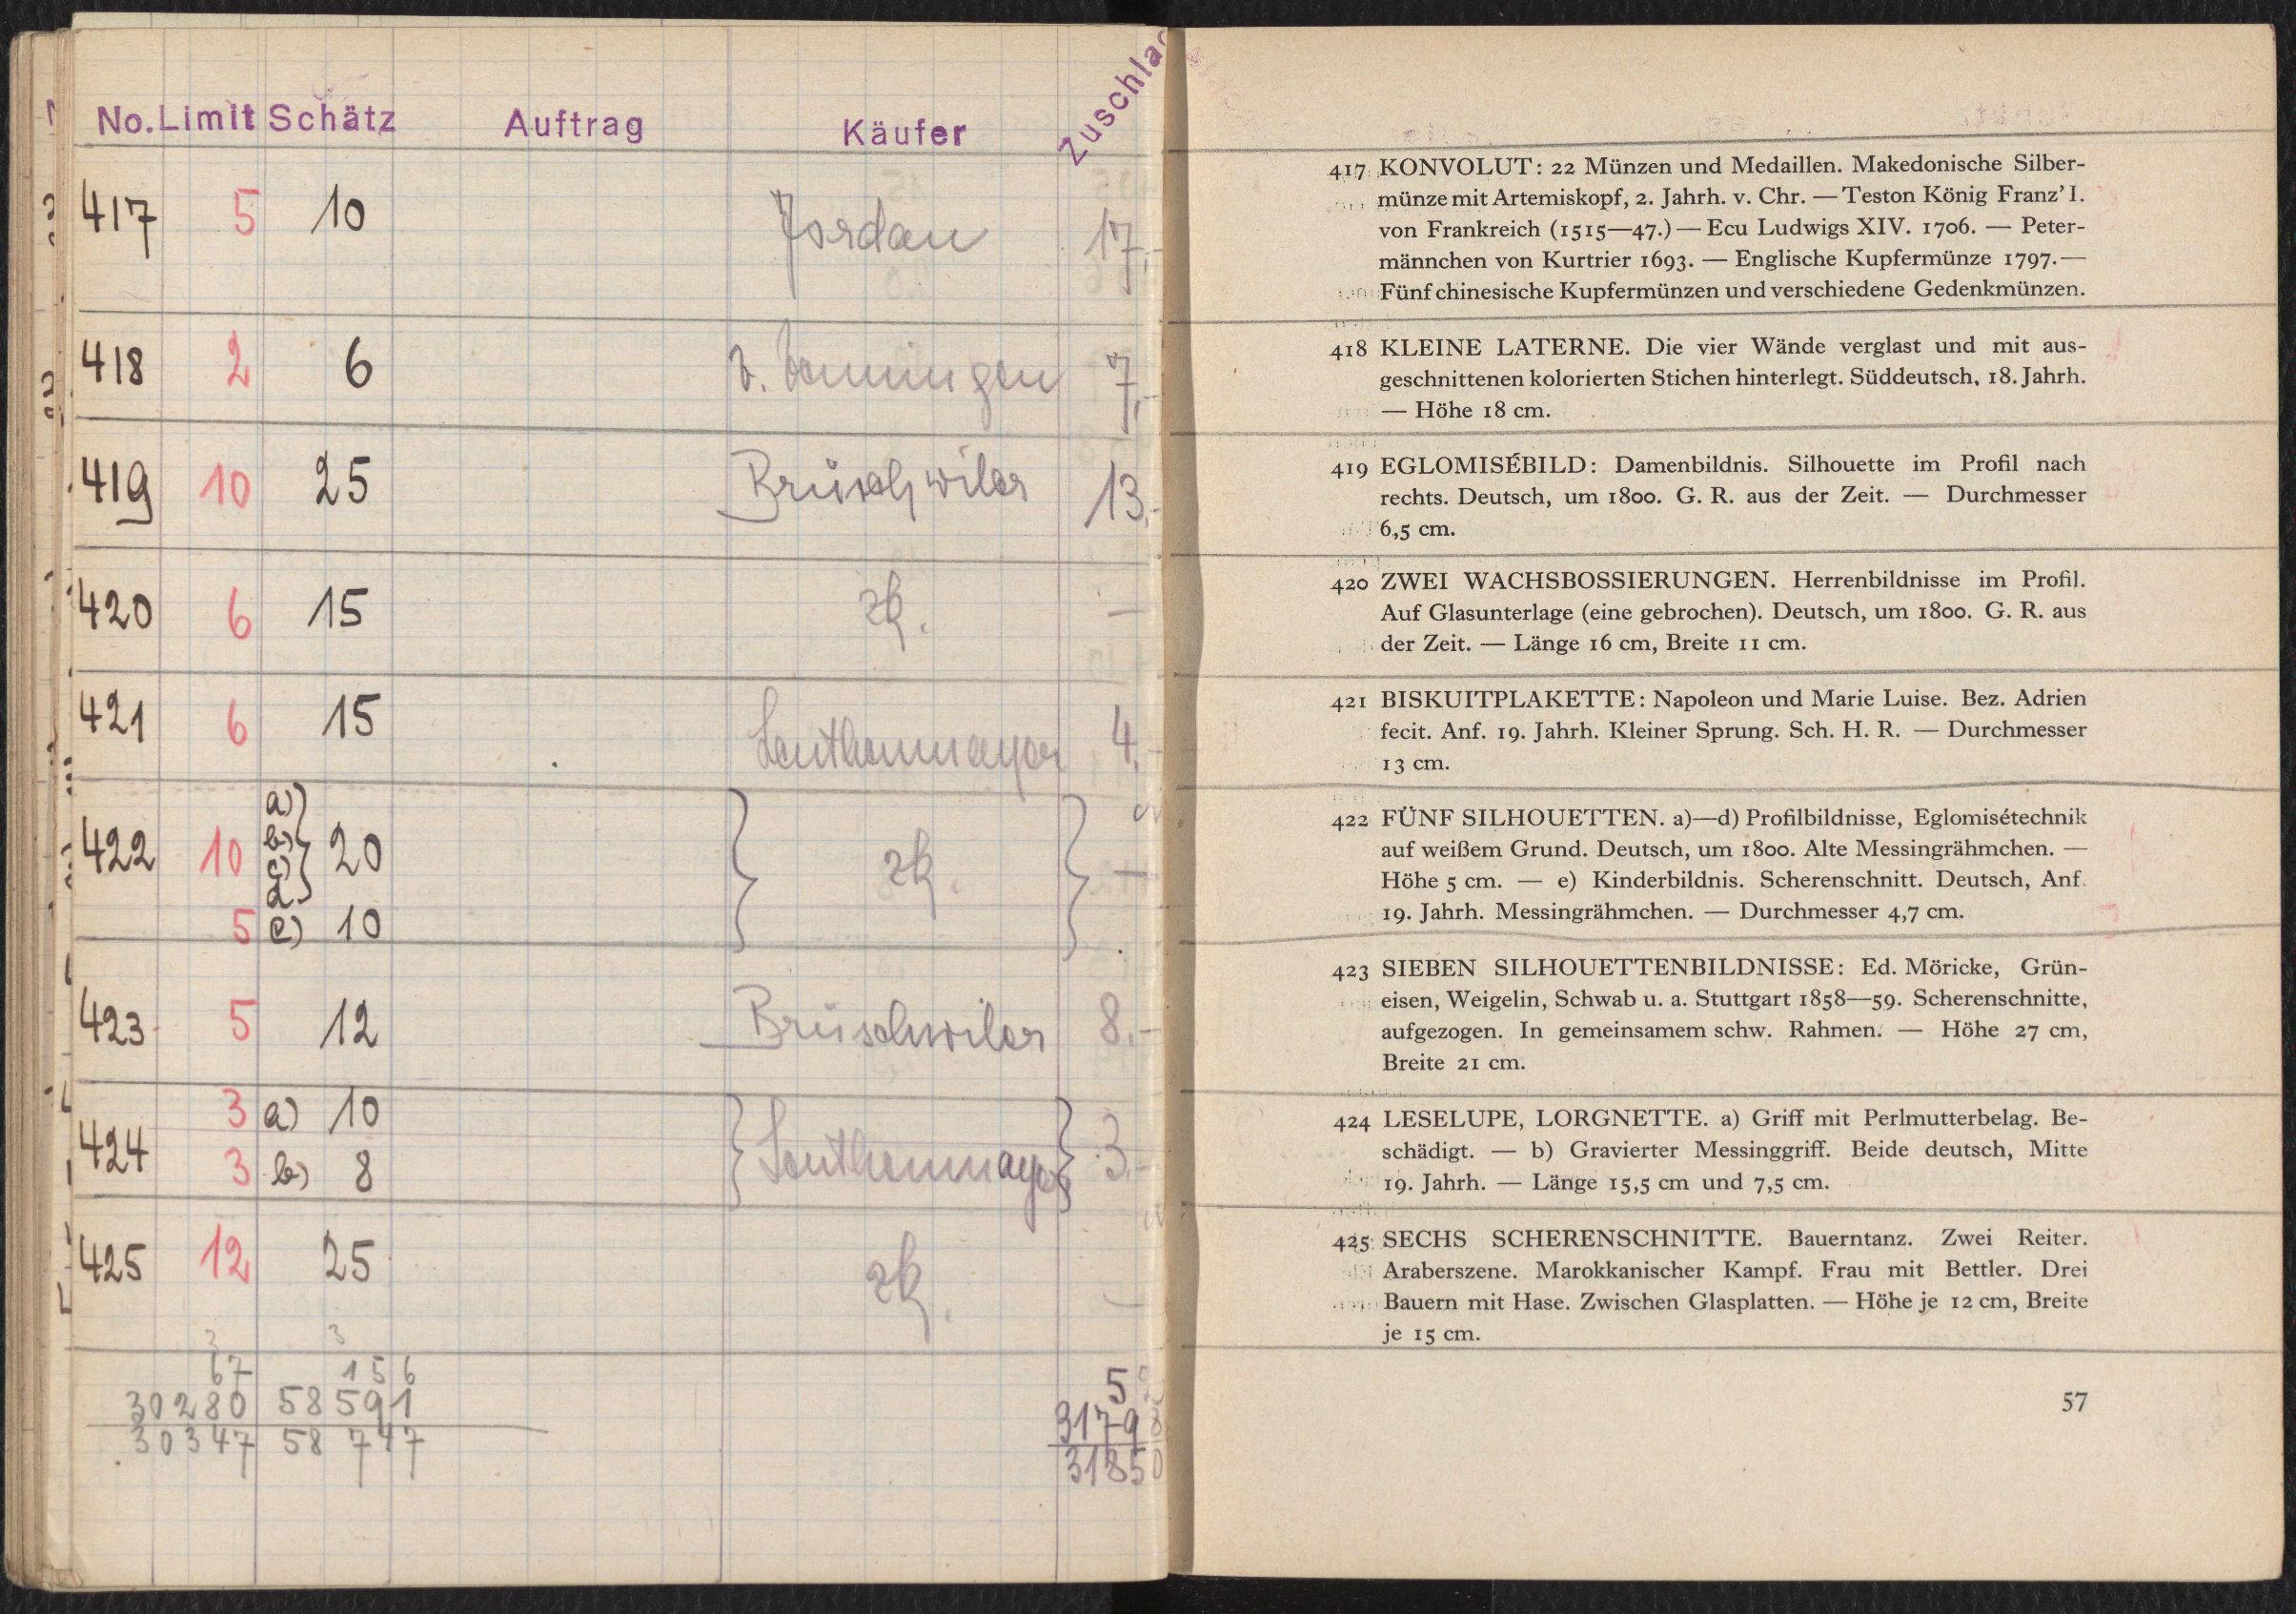 No. Limit Schätz Auftrag Käufer Zuschlag
417 5 10 Jordan 17,-
418 2 6 7,-
419 10 25 Brüschwiler 13,-
420 6 15 zk. —
421 6 15 Leuthenmayer 4,-
a)
b)
422 10 c) 20 zk. —
d.
5 e) 10
423 5 12 Brüschwiler 8,-
3 a) 10
424 Leuthenmayer 3,-
3 b) 8
425 12 25 zk. —
3 3
67 156 5
30280 58591 31798
30347 58747 31850
417 KONVOLUT: 22 Münzen und Medaillen. Makedonische Silber-
münze mit Artemiskopf, 2. Jahrh. v. Chr. — Teston König Franz’ I.
von Frankreich (1515—47.) — Ecu Ludwigs XIV. 1706. — Peter-
männchen von Kurtrier 1693. — Englische Kupfermünze 1797.—
Fünf chinesische Kupfermünzen und verschiedene Gedenkmünzen.
418 KLEINE LATERNE. Die vier Wände verglast und mit aus-
geschnittenen kolorierten Stichen hinterlegt. Süddeutsch, 18. Jahrh.
— Höhe 18 cm.
419 EGLOMISÉBILD: Damenbildnis. Silhouette im Profil nach
rechts. Deutsch, um 1800. G. R. aus der Zeit. — Durchmesser
6,5 cm.
420 ZWEI WACHSBOSSIERUNGEN. Herrenbildnisse im Profil.
Auf Glasunterlage (eine gebrochen). Deutsch, um 1800. G. R. aus
der Zeit. — Länge 16 cm, Breite 11 cm.
421 BISKUITPLAKETTE: Napoleon und Marie Luise. Bez. Adrien
fecit. Anf. 19. Jahrh. Kleiner Sprung. Sch. H. R. — Durchmesser
13 cm.
422 FÜNF SILHOUETTEN. a)—d) Profilbildnisse, Eglomisétechnik
auf weißem Grund. Deutsch, um 1800. Alte Messingrähmchen. —
Höhe 5 cm. — e) Kinderbildnis. Scherenschnitt. Deutsch, Anf.
19. Jahrh. Messingrähmchen. — Durchmesser 4,7 cm.
423 SIEBEN SILHOUETTENBILDNISSE: Ed. Möricke, Grün-
eisen, Weigelin, Schwab u. a. Stuttgart 1858—59. Scherenschnitte,
aufgezogen. In gemeinsamem schw. Rahmen. — Höhe 27 cm,
Breite 21 cm.
424 LESELUPE, LORGNETTE. a) Griff mit Perlmutterbelag. Be-
schädigt. — b) Gravierter Messinggriff. Beide deutsch, Mitte
19. Jahrh. — Länge 15,5 cm und 7,5 cm.
425 SECHS SCHERENSCHNITTE. Bauerntanz. Zwei Reiter.
Araberszene. Marokkanischer Kampf. Frau mit Bettler. Drei
Bauern mit Hase. Zwischen Glasplatten. — Höhe je 12 cm, Breite
je 15 cm.
57